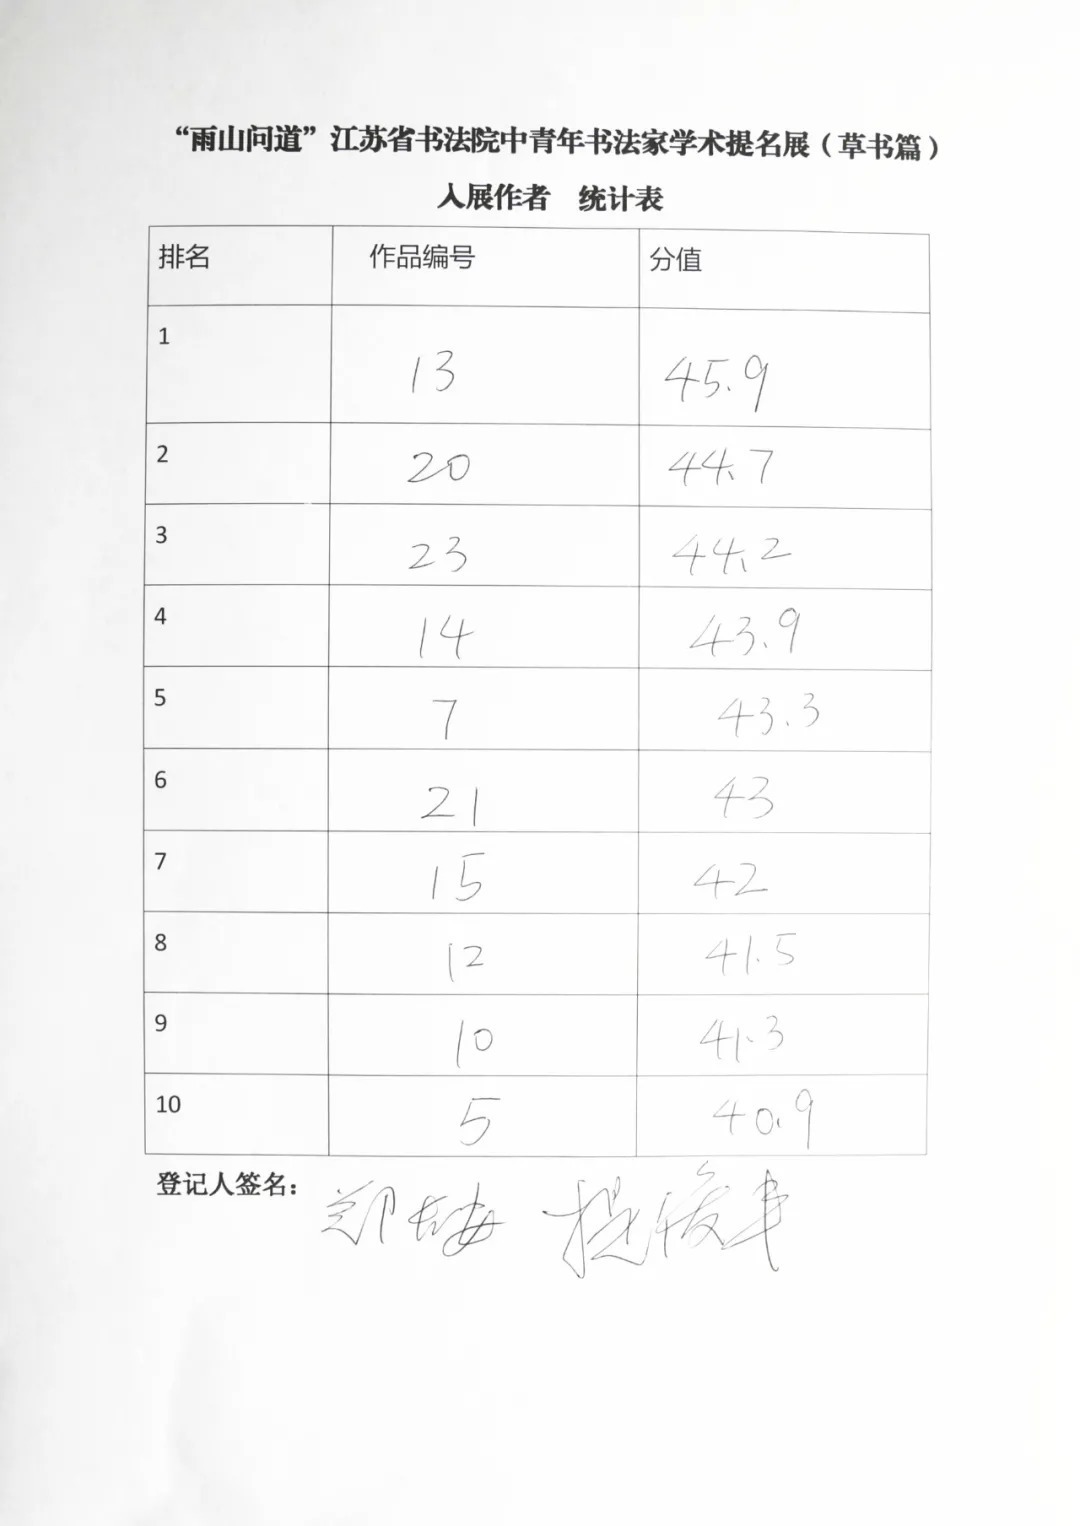 “雨山问道”江苏省书法院中青年书法家学术提名展（草书篇）
入展作者 统计表
排名 作品编号 分值
1 13 45.9
2 20 44.7
3 23 44.2
4 14 43.9
5 7 43.3
6 21 43
7 15 42
8 12 41.5
9 10 41.3
10 5 40.9
登记人签名：